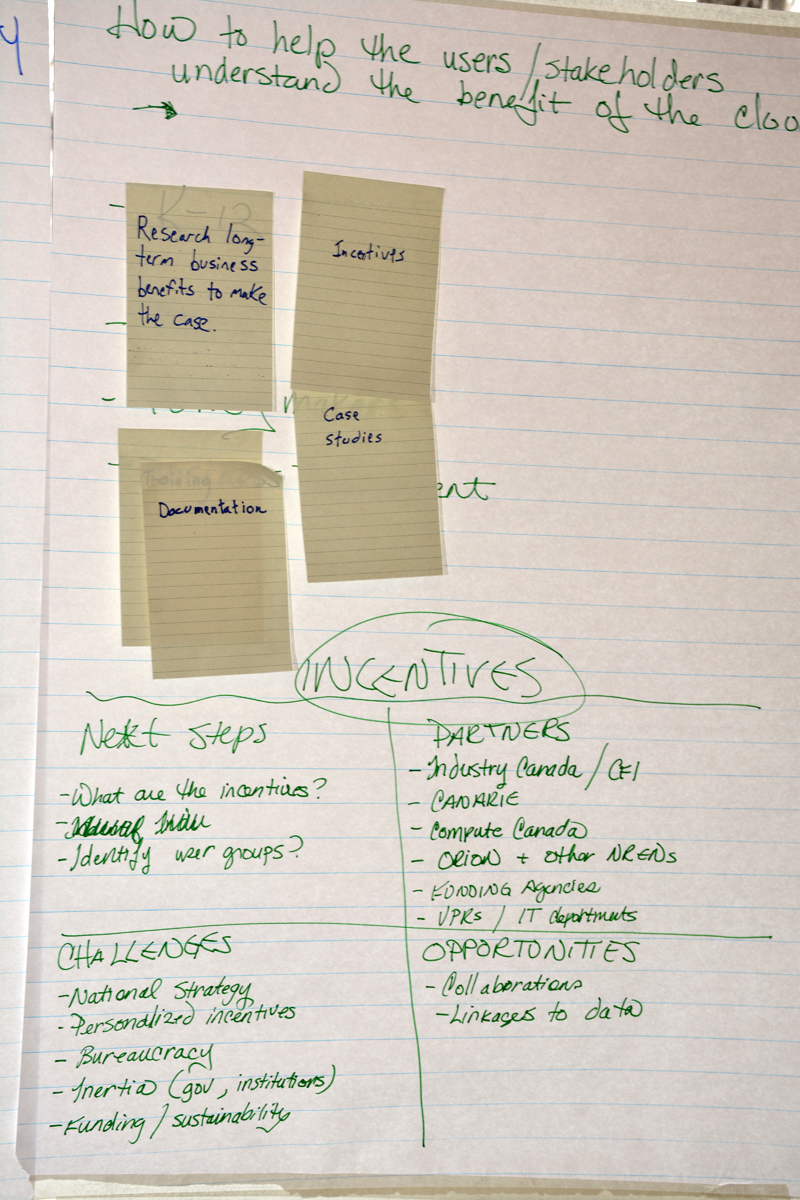 y
How to help the users/stakeholders
understand the benefit of the clou
K-12
Research long-
term business
benefits to make
the case.
Incentives
Case
Studies
Training
Documentation
ent
INCENTIVES
Next Steps
-What are the incentives?
-Identify user groups?
PARTNERS
-Industry Canada / CFI
- CANARIE
- Compute Canada
- ORION + other NRENs
- FUNDING Agencies
- VPRs / IT departments
CHALLENGES
-National Strategy
-Personalized incentives
- Bureaucracy
- Inertia (gov, institutions)
-Funding / sustainability
OPPORTUNITIES
- Collaborations
-Linkages to data